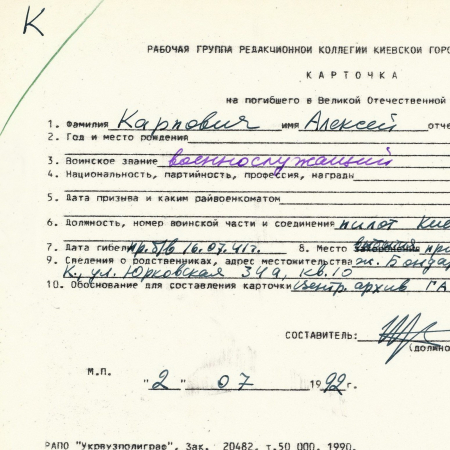 К
РАБОЧАЯ ГРУППА РЕДАКЦИОННОЙ КОЛЛЕГИИ КИЕВСКОЙ ГОРО
КАРТОЧКА
на погибшего в Великой Отечественной
1. Фамилия Карпович имя Алексей отче
2. Год и место рождения
3. Воинское звание военнослужащий
4. Национальность, партийность, профессия, награды
5. Дата призыва и каким райвоенкоматом
6. Должность, номер воинской части и соединения пилот Кие
7. Дата гибели пр.б/в 16.07.41г. 8. Место
9. Сведения о родственниках, адрес местожительства ж. Бондар
К., ул. Юрковская 34а, кв.10
10. Обоснование для составления карточки Центр. архив ГА
СОСТАВИТЕЛЬ:
(должно
М.П.
"2" 07 1992г.
РАПО "Укрвузполиграф", Зак. 20482. т.50 000. 1990.